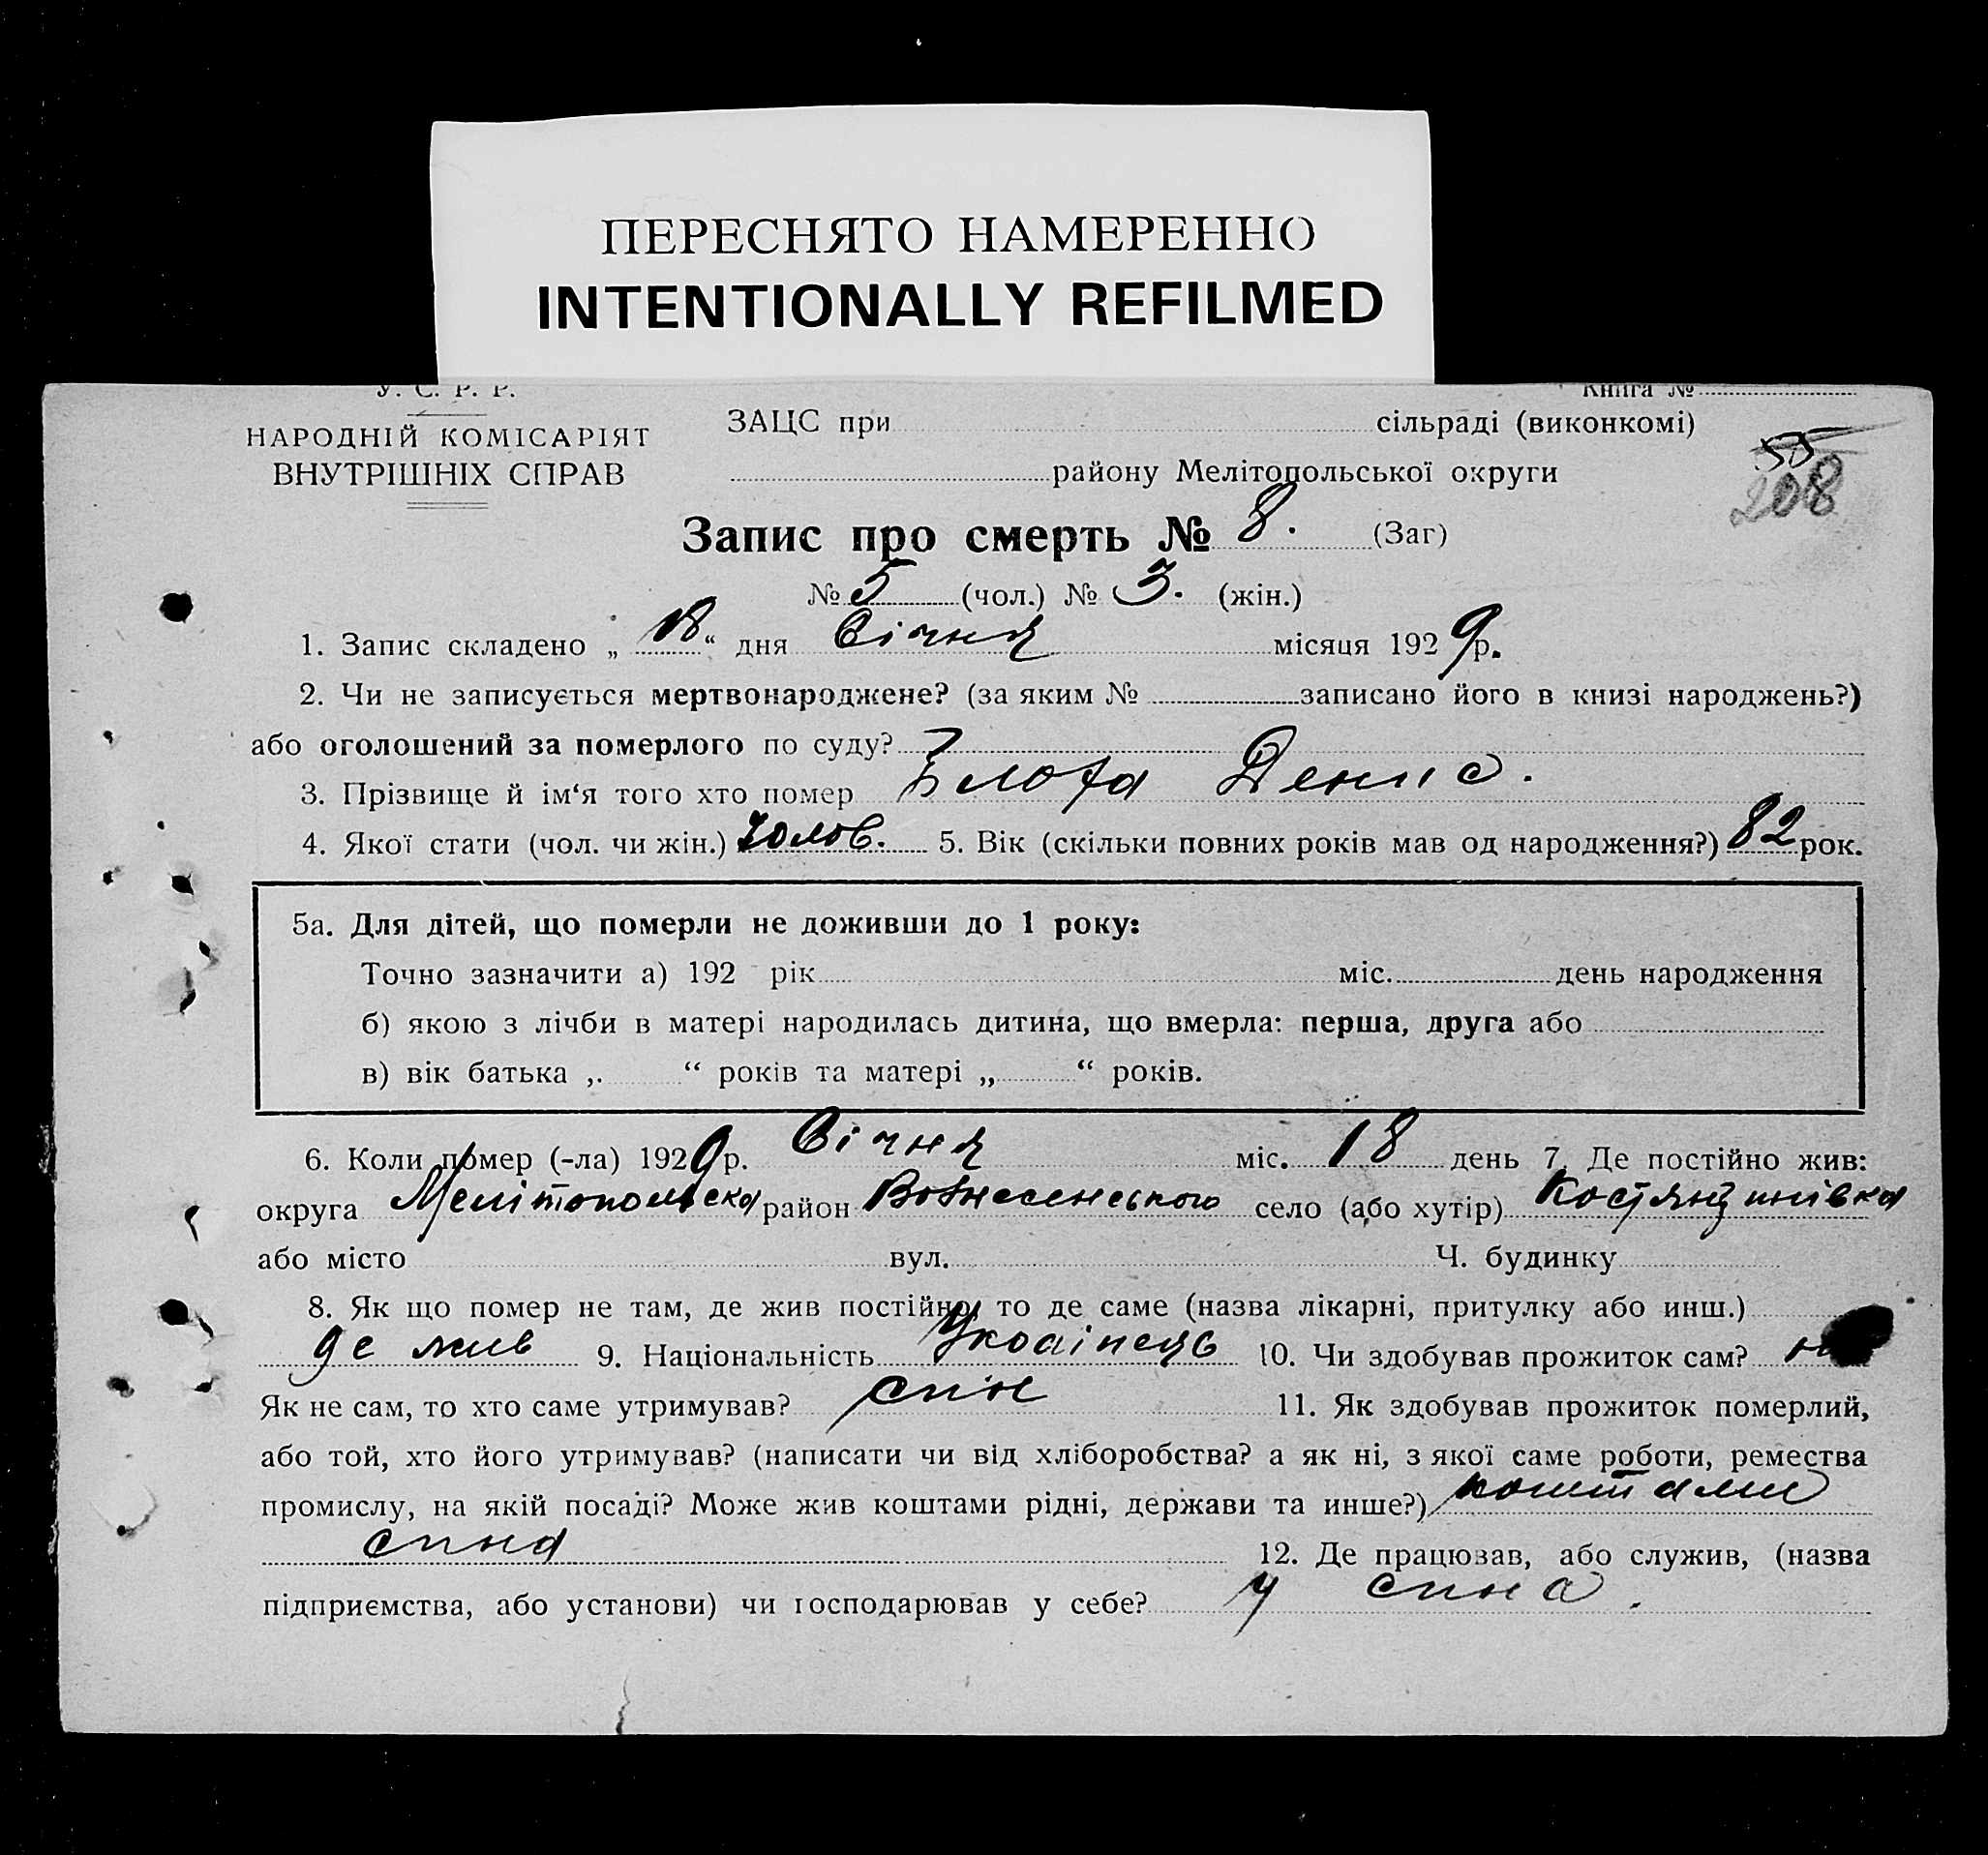 ПЕРЕСНЯТО НАМЕРЕННО
INTENTIONALLY REFILMED
У. С. Р. Р.
Книга №
НАРОДНІЙ КОМІСАРІЯТ
ВНУТРІШНІХ СПРАВ
ЗАЦС при сільраді (виконкомі)
району Мелітопольської округи
55
208
Запис про смерть № 8. (Заг)
№ 5 (чол.) № 3. (жін.)
1. Запис складено „ 18 “ дня Січня місяця 1929 р.
2. Чи не записується мертвонароджене? (за яким № записано його в книзі народжень?)
або оголошений за померлого по суду?
3. Прізвище й ім‘я того хто помер Блоха Денис.
4. Якої стати (чол. чи жін.) Чолов. 5. Вік (скільки повних років мав од народження?) 82 рок.
5а. Для дітей, що померли не доживши до 1 року:
Точно зазначити а) 192 рік міс. день народження
б) якою з лічби в матері народилась дитина, що вмерла: перша, друга або
в) вік батька „ “ років та матері „ “ років.
6. Коли помер (-ла) 1929 р. Січня міс. 18 день 7. Де постійно жив:
округа Мелітопольска район Вознесенського село (або хутір)
або місто вул. Ч. будинку
8. Як що помер не там, де жив постійно, то де саме (назва лікарні, притулку або инш.)
де жив 9. Національність Украінець 10. Чи здобував прожиток сам?
Як не сам, то хто саме утримував? син 11. Як здобував прожиток померлий,
або той, хто його утримував? (написати чи від хліборобства? а як ні, з якої саме роботи, ремества
промислу, на якій посаді? Може жив коштами рідні, держави та инше?) коштами
сина 12. Де працював, або служив, (назва
підприємства, або установи) чи господарював у себе? У сина.